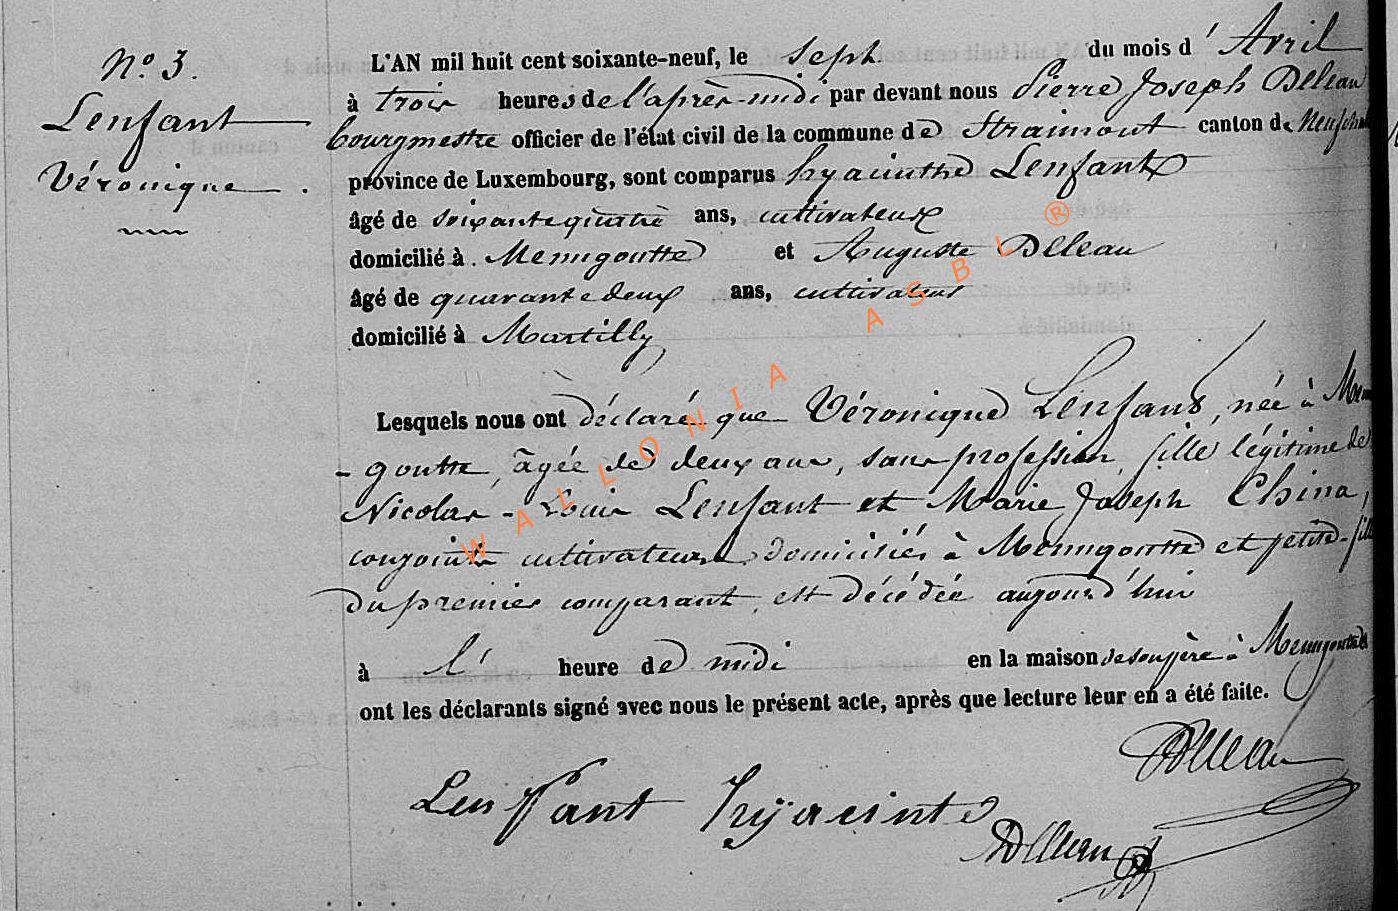 N.o 3.
Lenfant
Véronique.
L'AN mil huit cent soixante-neuf, le sept du mois d'Avril
à trois heures de l'après-midi par devant nous Pierre Joseph Deleau
bourgmestre officier de l'état civil de la commune de Straimont canton de Neufchat
province de Luxembourg, sont comparus hyacinthe Lenfant
âgé de soixante quatre ans, cultivateur
domicilié à Menugoutte et Auguste Deleau
âgé de quarante deux ans, cultivateur
domicilié à Martilly
Lesquels nous ont déclaré que Véronique Lenfant, née à Menu
-goutte, âgée de deux ans, sans profession, fille légitime de
Nicolas-Louis Lenfant et Marie Joseph China,
conjoints cultivateurs domiciliés à Menugoutte et petite-fille
du premier comparant, est décédée aujourd'hui
à l' heure de midi en la maison de son père à Menugoutte et
ont les déclarants signé avec nous le présent acte, après que lecture leur en a été faite.
Deleau
Lenfant hyacinte
ADeleau
WALLONIA ASBL ®